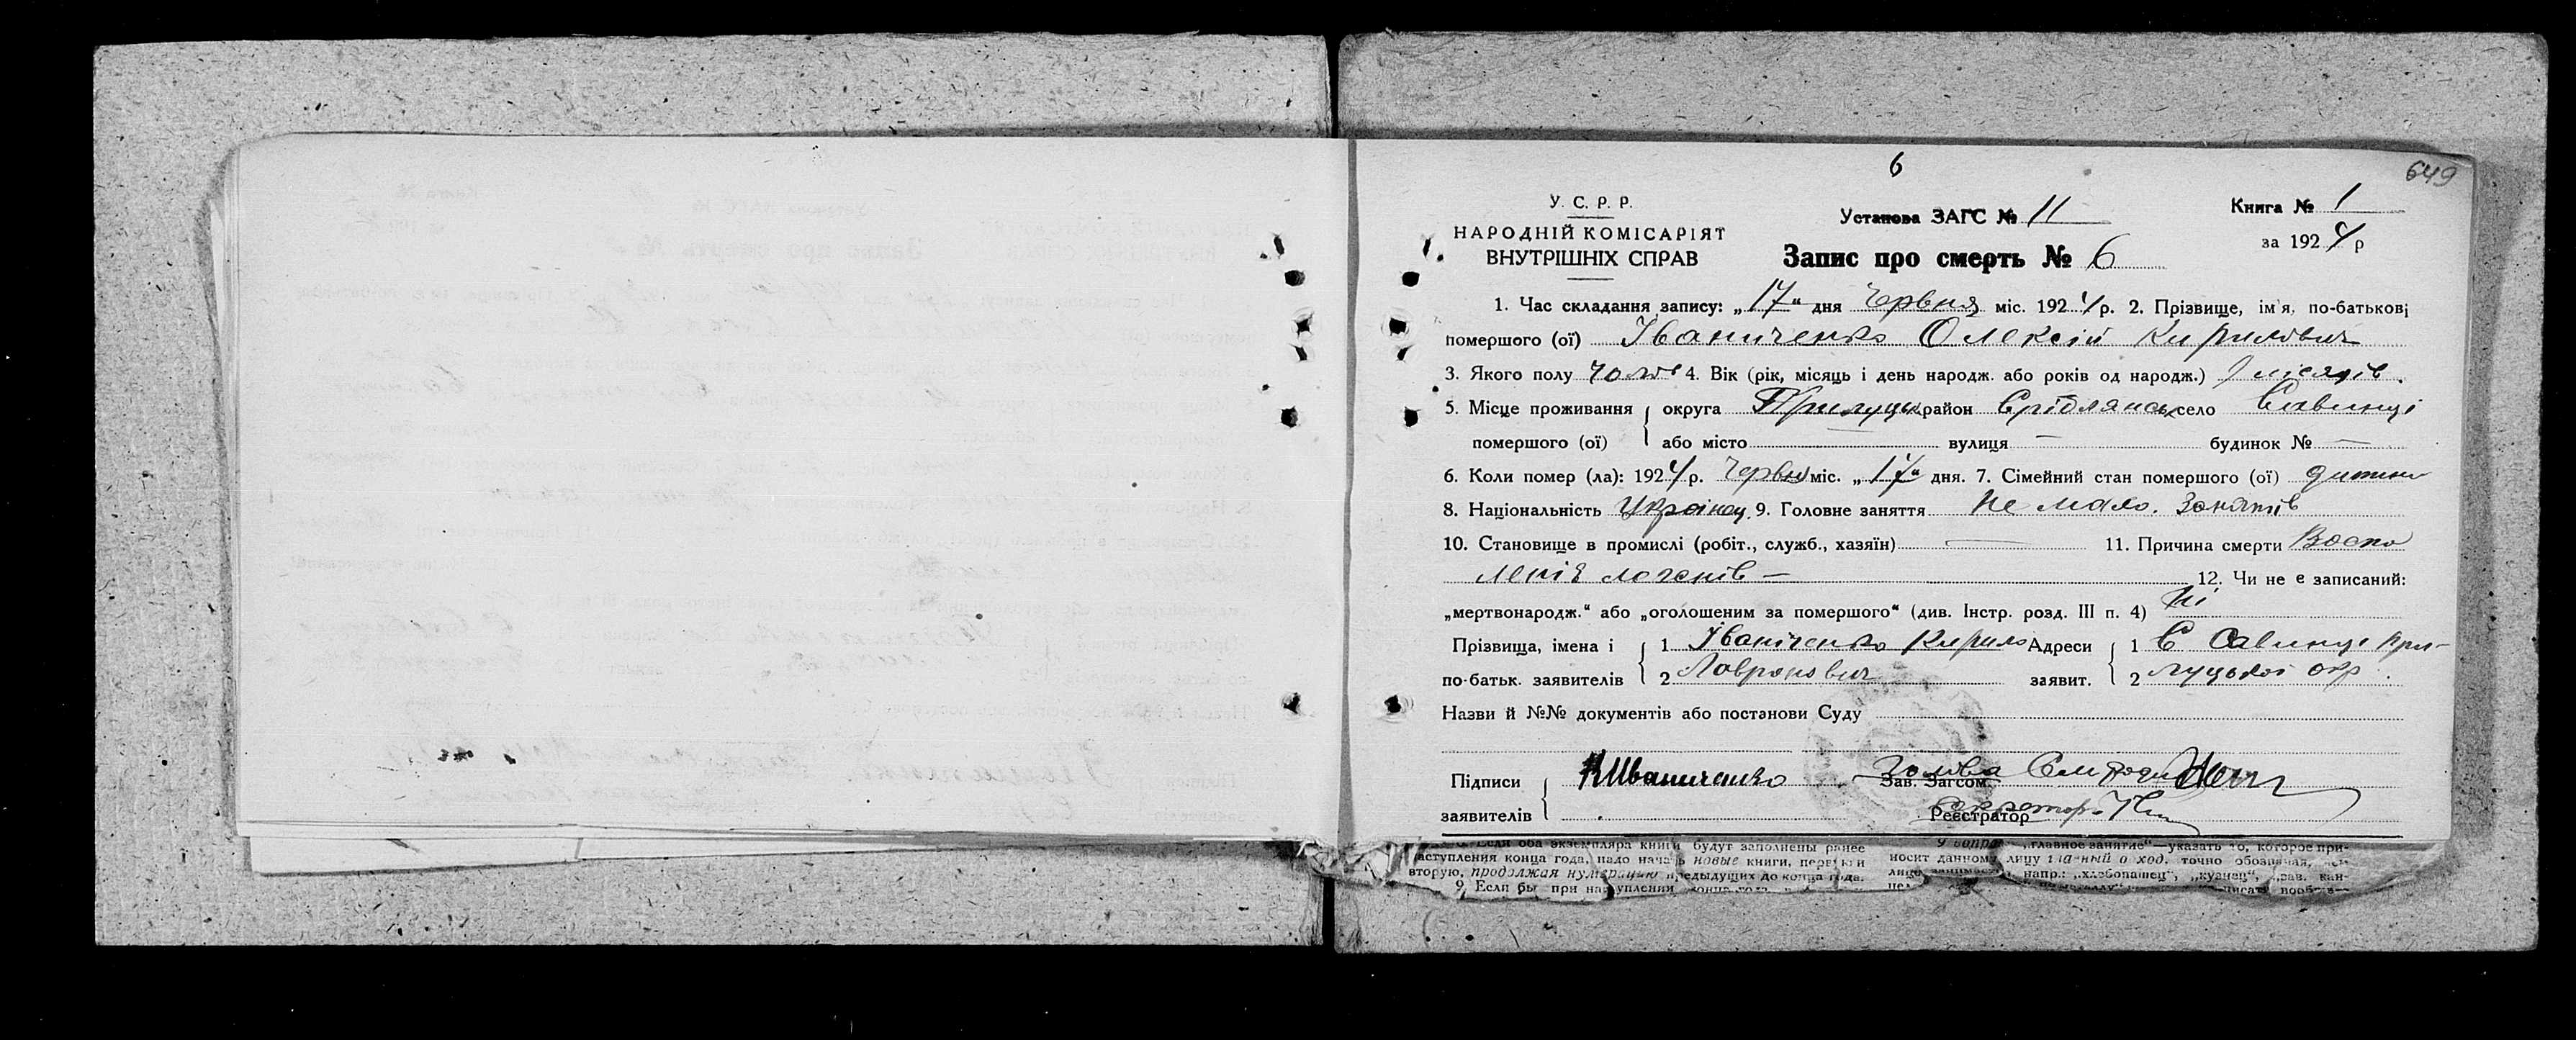 6
649
У. С. Р. Р.
НАРОДНІЙ КОМІСАРІЯТ
ВНУТРІШНІХ СПРАВ
Установа ЗАГС № 11
Запис про смерть № 6
Книга № 1
за 1924 р
1. Час складання запису: „17" дня Червня міс. 1924 р. 2. Прізвище, ім'я, по-батькові
помершого (ої) Іваниченко Олексій Кирилович
3. Якого полу чолов 4. Вік (рік, місяць і день народж. або років од народж.) місяців.
5. Місце проживання округа Прилуцьк район Сріблянськ село Савинці
помершого (ої) або місто вулиця — будинок № —
6. Коли помер (ла): 1924 р. Червня міс. „17" дня. 7. Сімейний стан помершого (ої) дитина
8. Національність Українец. 9. Головне заняття Не мало. Занятів
10. Становище в промислі (робіт., служб., хазяїн) — 11. Причина смерти Воспа
леніє логенів — 12. Чи не є записаний:
„мертвонародж." або „оголошеним за помершого" (див. Інстр. розд. III п. 4) Ні
Прізвища, імена і 1 Іваніченко Кирило Адреси 1 С Савинці При-
по-батьк. заявителів 2 Лавронович заявит. 2 луцької окр.
Назви й №№ документів або постанови Суду
Підписи КИваниченко Голова Сельради
Зав. Загсом
заявителів Секретарь
Реєстратор
Если оба экземпляра книги будут заполнены ранее
наступления конца года, надо начать новые книги, первую и
вторую, продолжая нумерацию предыдущих до конца года.
9. Если бы при наступлении конца года
„главное занятие"—указать то, которое при-
носит данному лицу главный доход, точно обозначая,
напр.: „хлебопашец", „кузнец", „зав. кан-